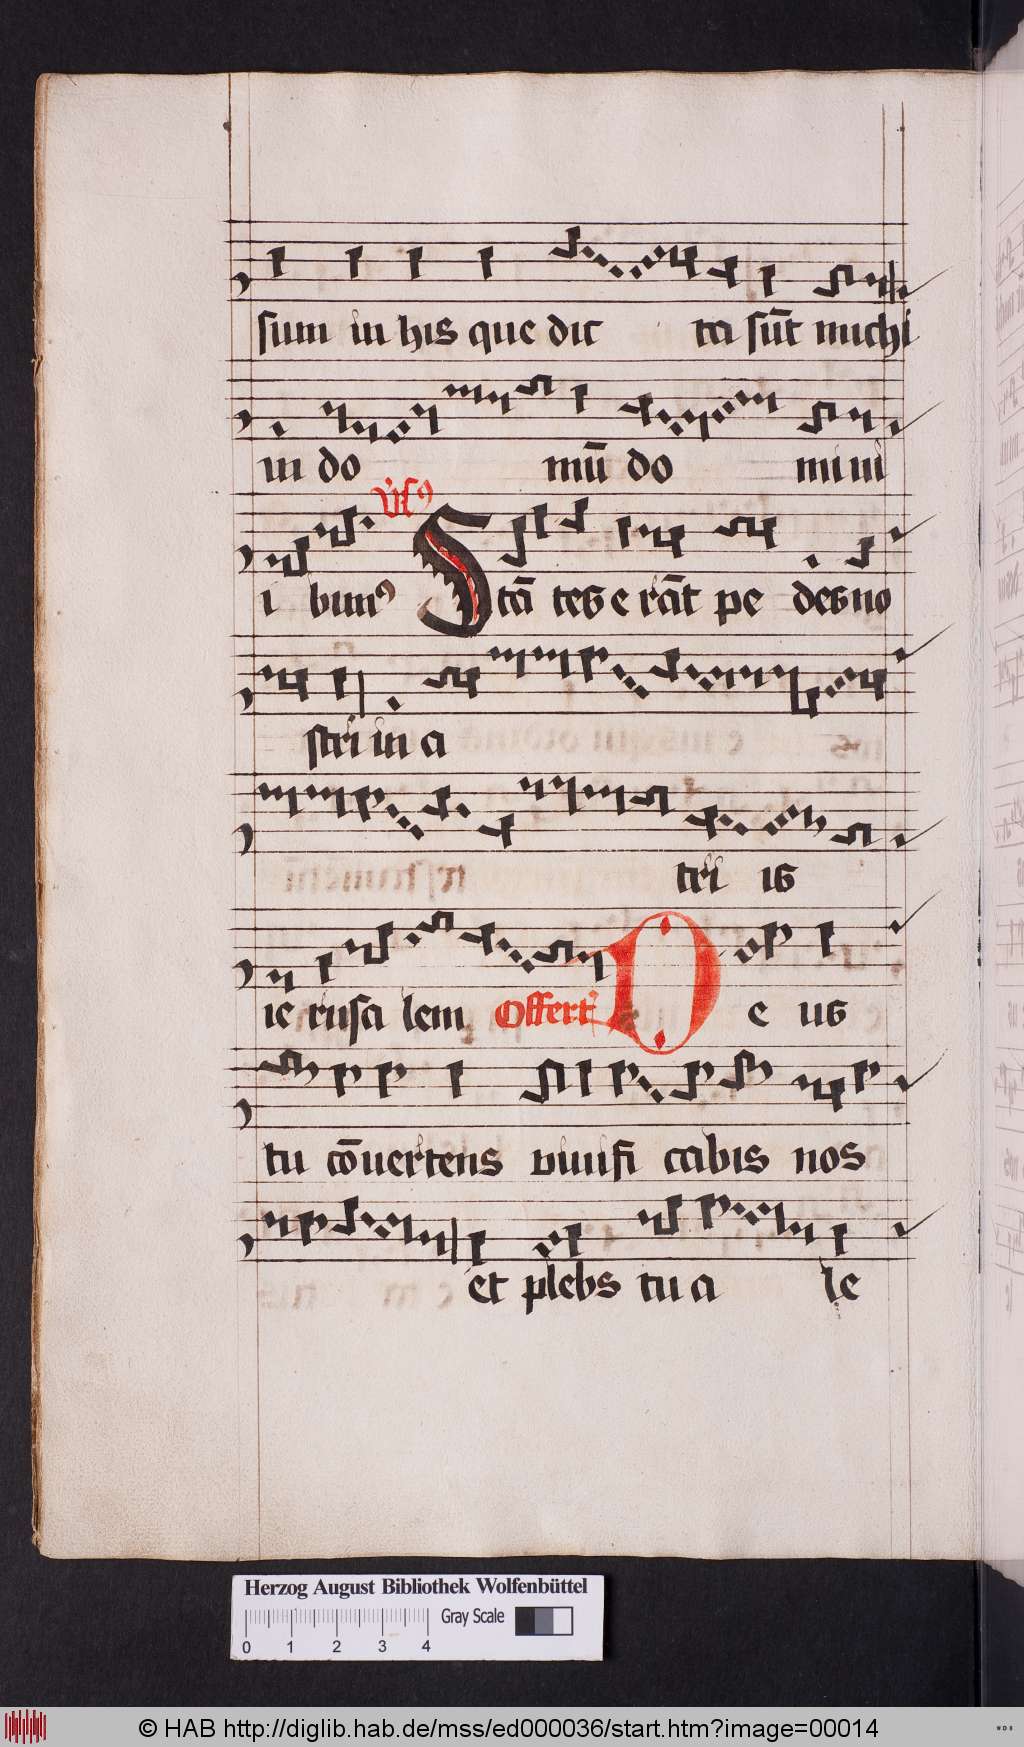 sum in his que dic ta sūt michi
in do mū do mi ni
V̓sꝰ
i bimꝰ Stā tes e rāt pe des no
stri in a
tri is
ie rusa lem Offert̓ D e us
tu cōuertens viuifi cabis nos
et plebs tu a le
Herzog August Bibliothek Wolfenbüttel
Gray Scale
0 1 2 3 4
© HAB http://diglib.hab.de/mss/ed000036/start.htm?image=00014